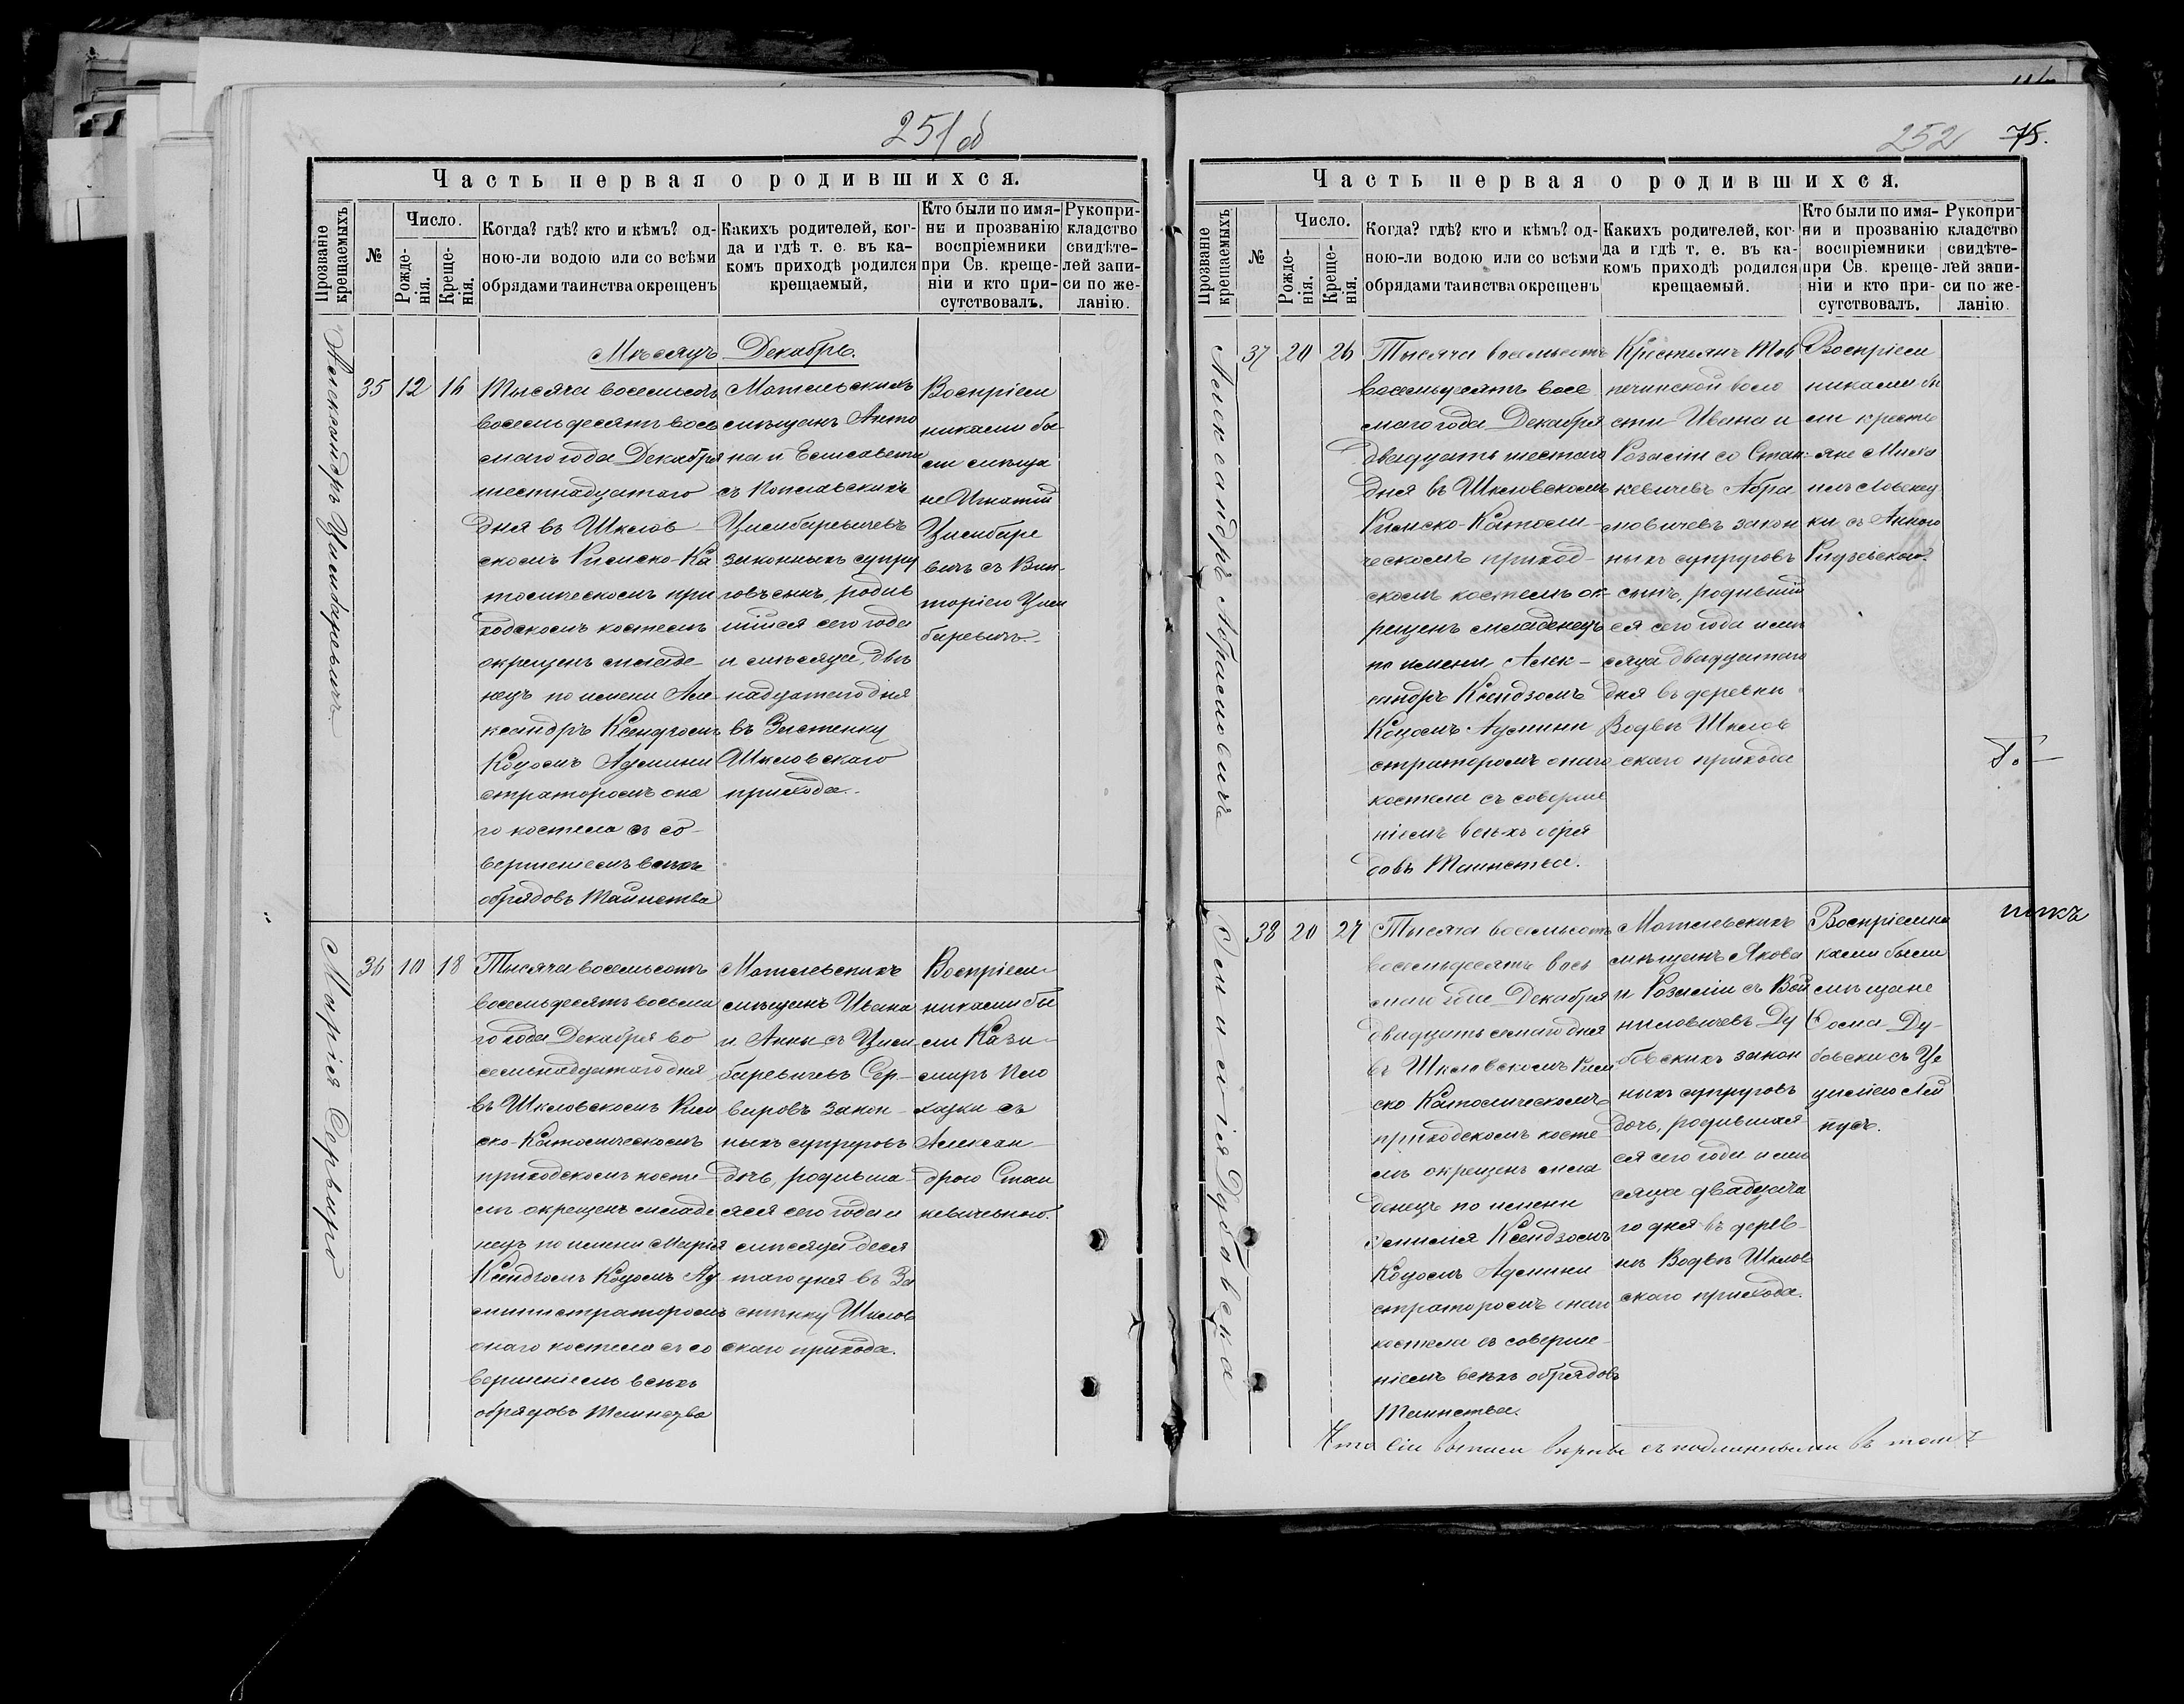 251 об
Часть первая о родившихся.
Прозваніе крещаемыхъ
№
Число.
Рожде-
нія.
Креще-
нія.
Когда? гдѣ? кто и кѣмъ? од-
ною-ли водою или со всѣми
обрядами таинства окрещенъ
Какихъ родителей, ког-
да и гдѣ т. е. въ ка-
комъ приходѣ родился
крещаемый.
Кто были по имя-
ни и прозванію
воспріемники
при Св. креще-
ніи и кто при-
сутствовалъ.
Рукопри-
кладство
свидѣте-
лей запи-
си по же-
ланію.
Мѣсяцъ Декабрь.
Александръ Цимбаревичъ
35 12 16
Тысяча восемьсотъ
восемьдесятъ вось
маго года Декабря
шестнадцатаго
дня въ Шклов
скомъ Римско-Ка
толическомъ при
ходскомъ костелѣ
окрещенъ младе-
нецъ по имени Але
ксандръ Ксендзомъ
Коцомъ Админи
страторомъ она
го костела съ со-
вершеніемъ всѣхъ
обрядовъ Таинства
Могилевскихъ
мѣщанъ Анто
на и Елисаветы
съ Поплавскихъ
Цимбаревичевъ
законныхъ супру
говъ сынъ, родив
шійся сего года
и мѣсяца, двѣ
надцатаго дня
въ Застенку
Шкловскаго
прихода.
Воспріем
никами бы
ли мѣща
не Игнатій
Цимбаре
вичъ съ Вик-
торіею Цим
баревичъ.
Марія Сервиро
36 10 18
Тысяча восемьсотъ
восемьдесятъ восьма
го года Декабря во
семьнадцатаго дня
въ Шкловскомъ Рим
ско-Католическомъ
приходскомъ косте-
лѣ окрещенъ младе
нецъ по имени Марія
Ксендзомъ Коцомъ Ад
министраторомъ
онаго костела съ со
вершеніемъ всѣхъ
обрядовъ Таинства
Могилевскихъ
мѣщанъ Ивана
и Анны съ Цим
баревичевъ Сер-
вировъ закон-
ныхъ супруговъ
дочь, родивша-
яся сего года и
мѣсяца деся
таго дня въ За
стѣнку Шклов
скаго прихода.
Воспріем-
никами бы
ли Кази-
миръ
съ
Алексан-
дрою Стан
кевичевною.
252 75.
Часть первая о родившихся.
Прозваніе крещаемыхъ
№
Число.
Рожде-
нія.
Креще-
нія.
Когда? гдѣ? кто и кѣмъ? од-
ною-ли водою или со всѣми
обрядами таинства окрещенъ
Какихъ родителей, ког-
да и гдѣ т. е. въ ка-
комъ приходѣ родился
крещаемый.
Кто были по имя-
ни и прозванію
воспріемники
при Св. креще-
ніи и кто при-
сутствовалъ.
Рукопри-
кладство
свидѣте-
лей запи-
си по же-
ланію.
Александръ Абрамовичъ
37 20 26
Тысяча восемьсотъ
восемьдесятъ вось
маго года Декабря
двадцать шестаго
дня въ Шкловскомъ
Римско-Католи-
ческомъ приход-
скомъ костелѣ ок-
рещенъ младенецъ
по имени Алек-
сандръ Ксендзомъ
Коцомъ Админи
страторомъ онаго
костела съ соверше
ніемъ всѣхъ обря
довъ Таинства.
Крестьянъ
воло
сти Ивана и
Розаліи со Стан-
кевичевъ Абра
мовичевъ закон
ныхъ супруговъ
сынъ, родившій
ся сего года и мѣ
сяца двадцатаго
дня въ деревни
Водвѣ Шклов
скаго прихода
Воспріем
никами бы
ли кресть
яне
съ Анною
38 20 27
Дубовска
Тысяча восемьсотъ
восемьдесятъ вось
маго года Декабря
двадцать семаго дня
въ Шкловскомъ Рим
ско Католическомъ
приходскомъ косте
лѣ окрещенъ мла
денецъ по имени
Ксендзомъ
Коцомъ Админи
страторомъ онаго
костела съ соверше-
ніемъ всѣхъ обрядовъ
Таинства.
Могилевскихъ
мѣщанъ Якова
и Розаліи съ Вой
ниловичевъ Ду
бовскихъ закон
ныхъ супруговъ
дочь, родившая
ся сего года и мѣ
сяца двадцата
го дня въ дерев-
нѣ Водвѣ Шклов
скаго прихода.
Воспріемни
ками были
мѣщане
Дубовски съ Це
циліею
Что сіи выписи вѣрны съ подлинными въ томъ